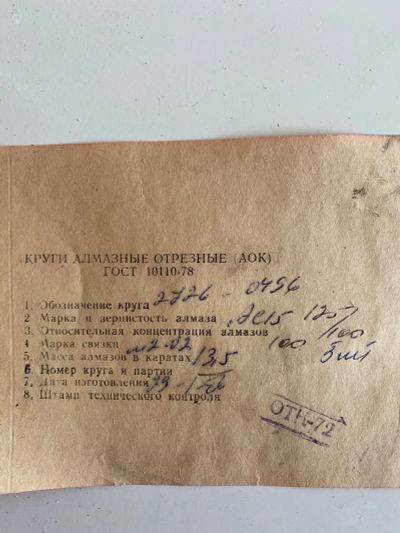 КРУГИ АЛМАЗНЫЕ ОТРЕЗНЫЕ (АОК)
ГОСТ 10110-78
1. Обозначение круга 2726 - 0456
2 Марка и зернистость алмаза АС15 125/100
3. Относительная концентрация алмазов 100
4 Марка связки М2-02
5. Масса алмазов в каратах 13,5
6. Номер круга и партии
7. Дата изготовления
8. Штамп технического контроля
ОТК-72